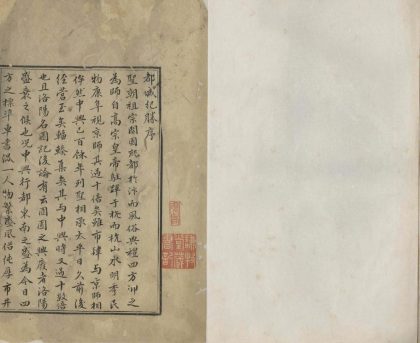 都城紀勝序
聖朝祖宗開國就都於汴而風俗典禮四方仰之
為師自高宗皇帝駐蹕于杭而杭山水明秀民
物康阜視京師其過十倍矣雖市肆與京師相
侔然中興已百餘年列聖相承太平日久前後
經營至矣輻輳集矣其與中興時又過十數倍
也且洛陽名園記後論有云園囿之興廢者洛陽
盛衰之候也況中興行都東南之盛為今日四
方之標準車書混一人物繁盛風俗純厚市井